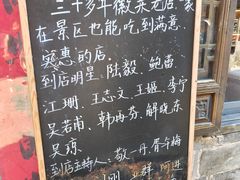 二十多年徽菜老店·家
在景区也能吃到满意
实惠的店.
到店明星、陆毅、鲍雷
江珊、王志文、王姬、李宁
吴若甫、韩雨芬、解晓东
吴琼.
到店主持人、敬一丹、屑午梅
刚